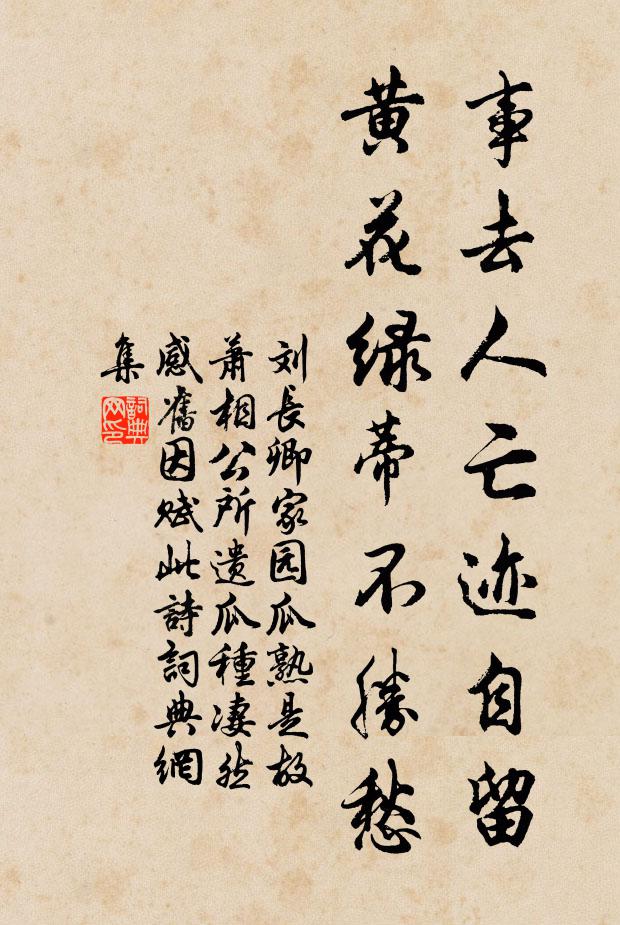 事去人亡迹自留
黄花绿蒂不勝愁
刘長卿家园瓜熟是故
萧相公所遗瓜種凄然
感舊因赋此詩詞典網
集
詞典網印